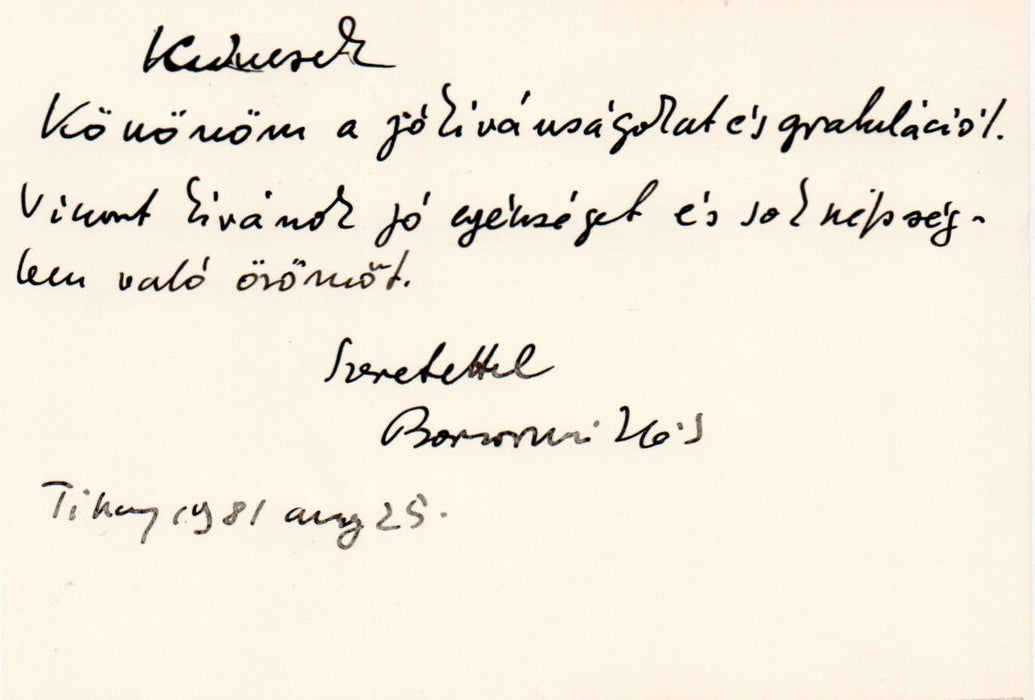 Kedvesek
Köszönöm a jókivánságokat és gratulációt.
Viszont kivánok jó egészséget és sok népség-
ben való örömöt.
Szeretettel
Borsos Miklós
Tihany 1981 aug 25.